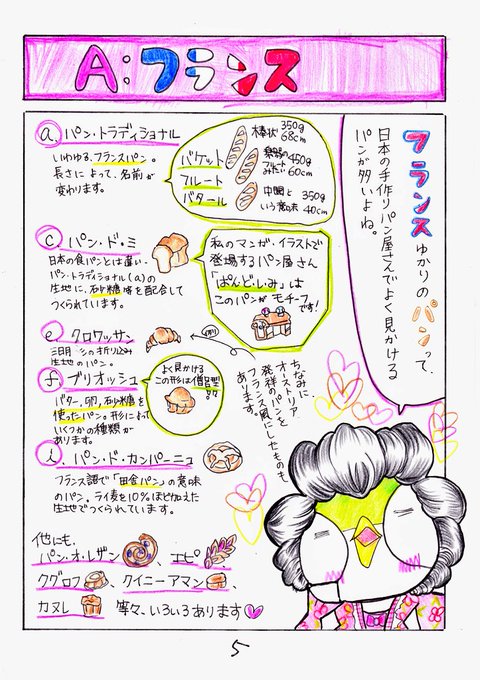 A:フランス
フランスゆかりのパンって、
日本の手作りパン屋さんでよく見かける
パンが多いよね。
a. パン・トラディショナル
いわゆる、フランスパン。
長さによって、名前が
変わります。
バケット
棒状 350g 68cm
フルート
楽器の フルート みたい 450g 60cm
バタール
中間と いう意味 350g 40cm
c. パン・ド・ミ
日本の食パンとは違い、
パン・トラディショナル(a)の
生地に、砂糖等を配合して
つくられています。
私のマンガ・イラストで
登場するパン屋さん
「ぱんど・しみ」は
このパンが モチーフです!
e. クロワッサン
三日月 の折り込み
生地のパン。
ちなみに、
オーストリア
発祥のパンを
フランス風にしたものも
あります。
f. ブリオッシュ
バター、卵、砂糖を
使ったパン。形によって
いくつかの種類が
あります。
よく見かける
この形は僧侶型
i. パン・ド・カンパーニュ
フランス語で「田舎パン」の意味
のパン。ライ麦を10%ほど加えた
生地でつくられています。
他にも、
パン・オ・レザン、エピ、
クグロフ、クイニーアマン、
カヌレ 等々、いろいろあります
5